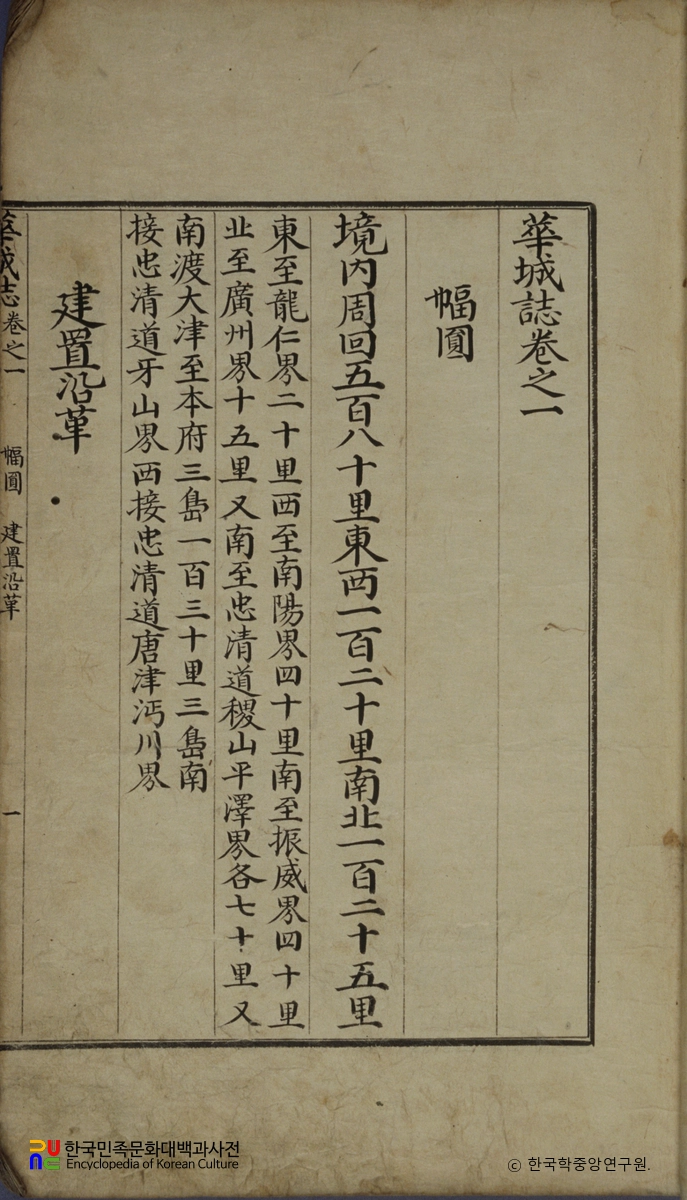 華城誌卷之一
幅圓
境内周回五百八十里東西一百二十里南北一百二十五里
東至龍仁界二十里西至南陽界四十里南至振威界四十里
北至廣州界十五里又南至忠清道稷山平澤界各七十里又
南渡大津至本府三島一百三十里三島南
接忠清道牙山界西接忠清道唐津沔川界
建置沿革
華城志卷之一 幅圓 建置沿革 一
한국민족문화대백과사전
Encyclopedia of Korean Culture
© 한국학중앙연구원.